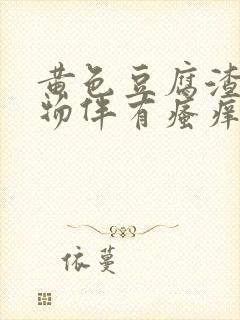 黄色豆腐渣
物伴有瘙痒
依蔓